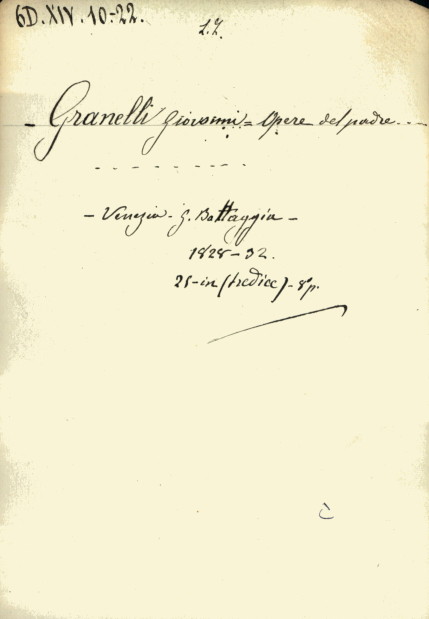 6D.XIV.10-22.
L.Z.
- Granelli Giovanni = Opere del padre ...
- Venezia - G. Battaggia -
1828-32.
25-in (tredici) - 8°p.